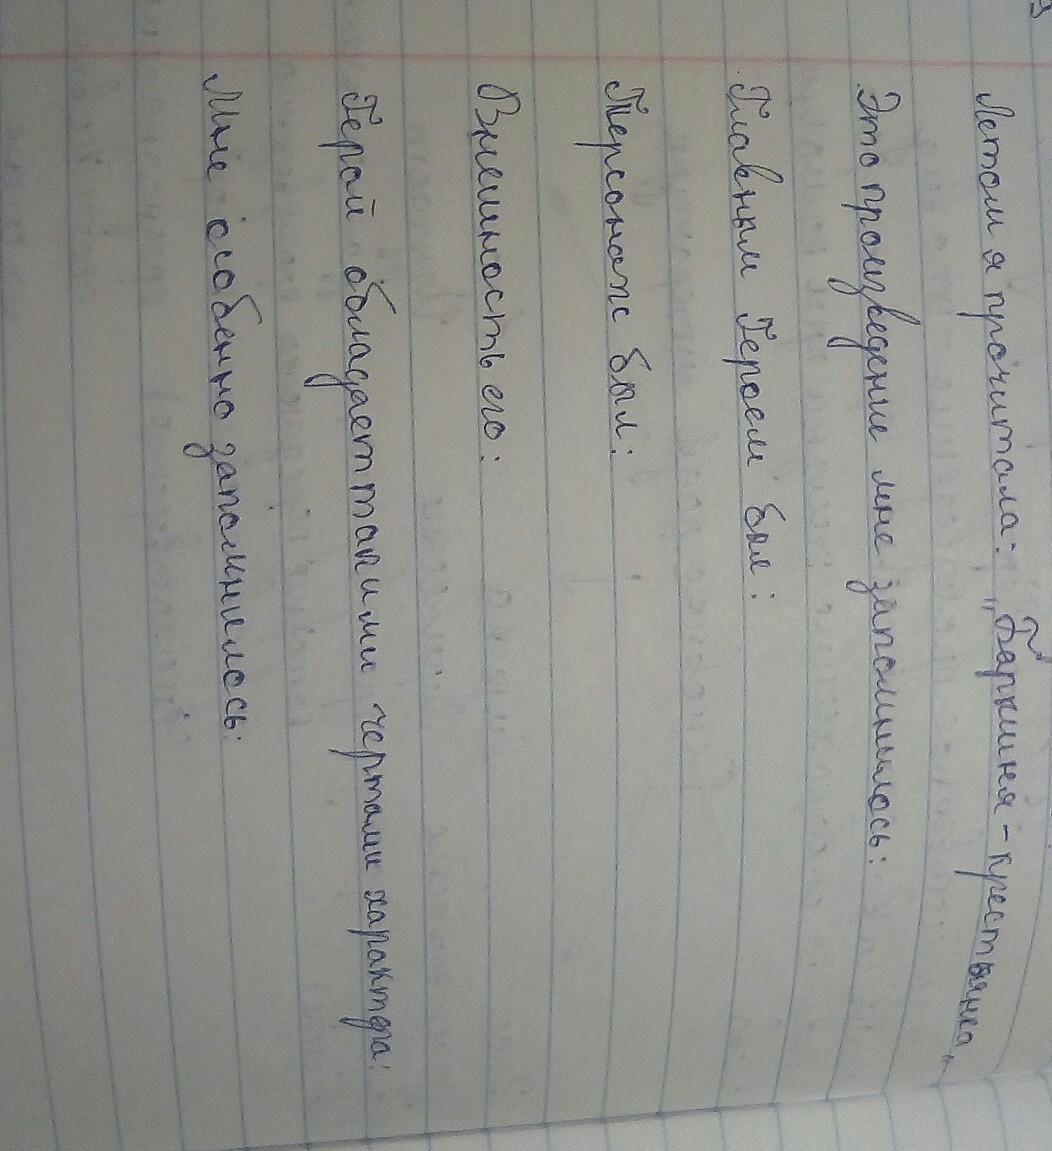 Летом я прочитала: „Баришня-крестьянка„
Это произведение мне запомнилось:
Главным Героем был:
Персонаж был:
Внешность его:
Герой обладает такими чертами характера:
Мне особенно запомнилось: